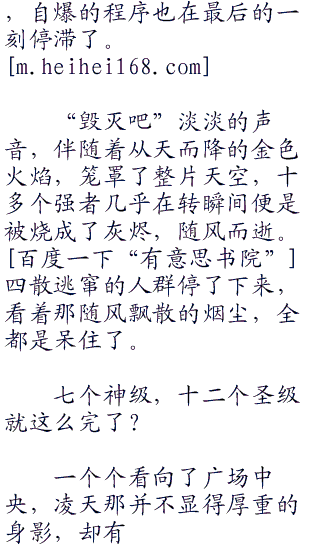 ，自爆的程序也在最后的一
刻停滞了。
[m.heihei168.com]
“毁灭吧”淡淡的声
音，伴随着从天而降的金色
火焰，笼罩了整片天空，十
多个强者几乎在转瞬间便是
被烧成了灰烬，随风而逝。
[百度一下“有意思书院”]
四散逃窜的人群停了下来，
看着那随风飘散的烟尘，全
都是呆住了。
七个神级，十二个圣级
就这么完了？
一个个看向了广场中
央，凌天那并不显得厚重的
身影，却有